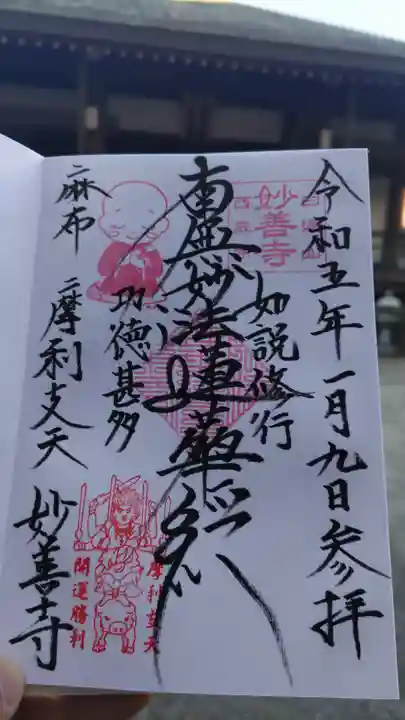 令和五年一月九日参拝
妙善寺
如説修行
南無妙法蓮華経
功徳甚多
麻布
摩利支天
妙善寺
摩利支天
開運勝利